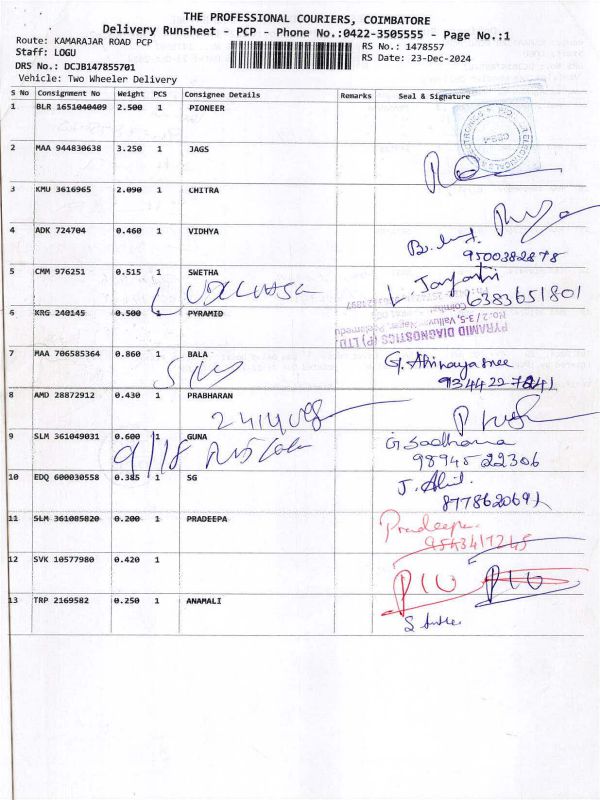 THE PROFESSIONAL COURIERS, COIMBATORE
Delivery Runsheet - PCP - Phone No.:0422-3505555 - Page No.:1
Route: KAMARAJAR ROAD PCP
RS No.: 1478557
Staff: LOGU
RS Date: 23-Dec-2024
DRS No.: DCJB147855701
Vehicle: Two Wheeler Delivery
S No Consignment No Weight PCS Consignee Details Remarks Seal & Signature
1 BLR 1651040409 2.500 1 PIONEER
2 MAA 944830638 3.250 1 JAGS
3 KMU 3616965 2.090 1 CHITRA
4 ADK 724704 0.460 1 VIDHYA
9500382878
5 CMM 976251 0.515 1 SWETHA
6383651801
6 KRG 240145 0.500 1 PYRAMID
PYRAMID DIAGNOSTICS (P) LTD
7 MAA 706585364 0.860 1 BALA
G. Abinayasree
9344227841
8 AMD 28872912 0.430 1 PRABHARAN
9 SLM 361049031 0.600 1 GUNA
G. Sadhana
98945 22306
10 EDQ 600030558 0.385 1 SG
8778620691
11 SLM 361085820 0.200 1 PRADEEPA
Pradeepa
9543417245
12 SVK 10577980 0.420 1
13 TRP 2169582 0.250 1 ANAMALI